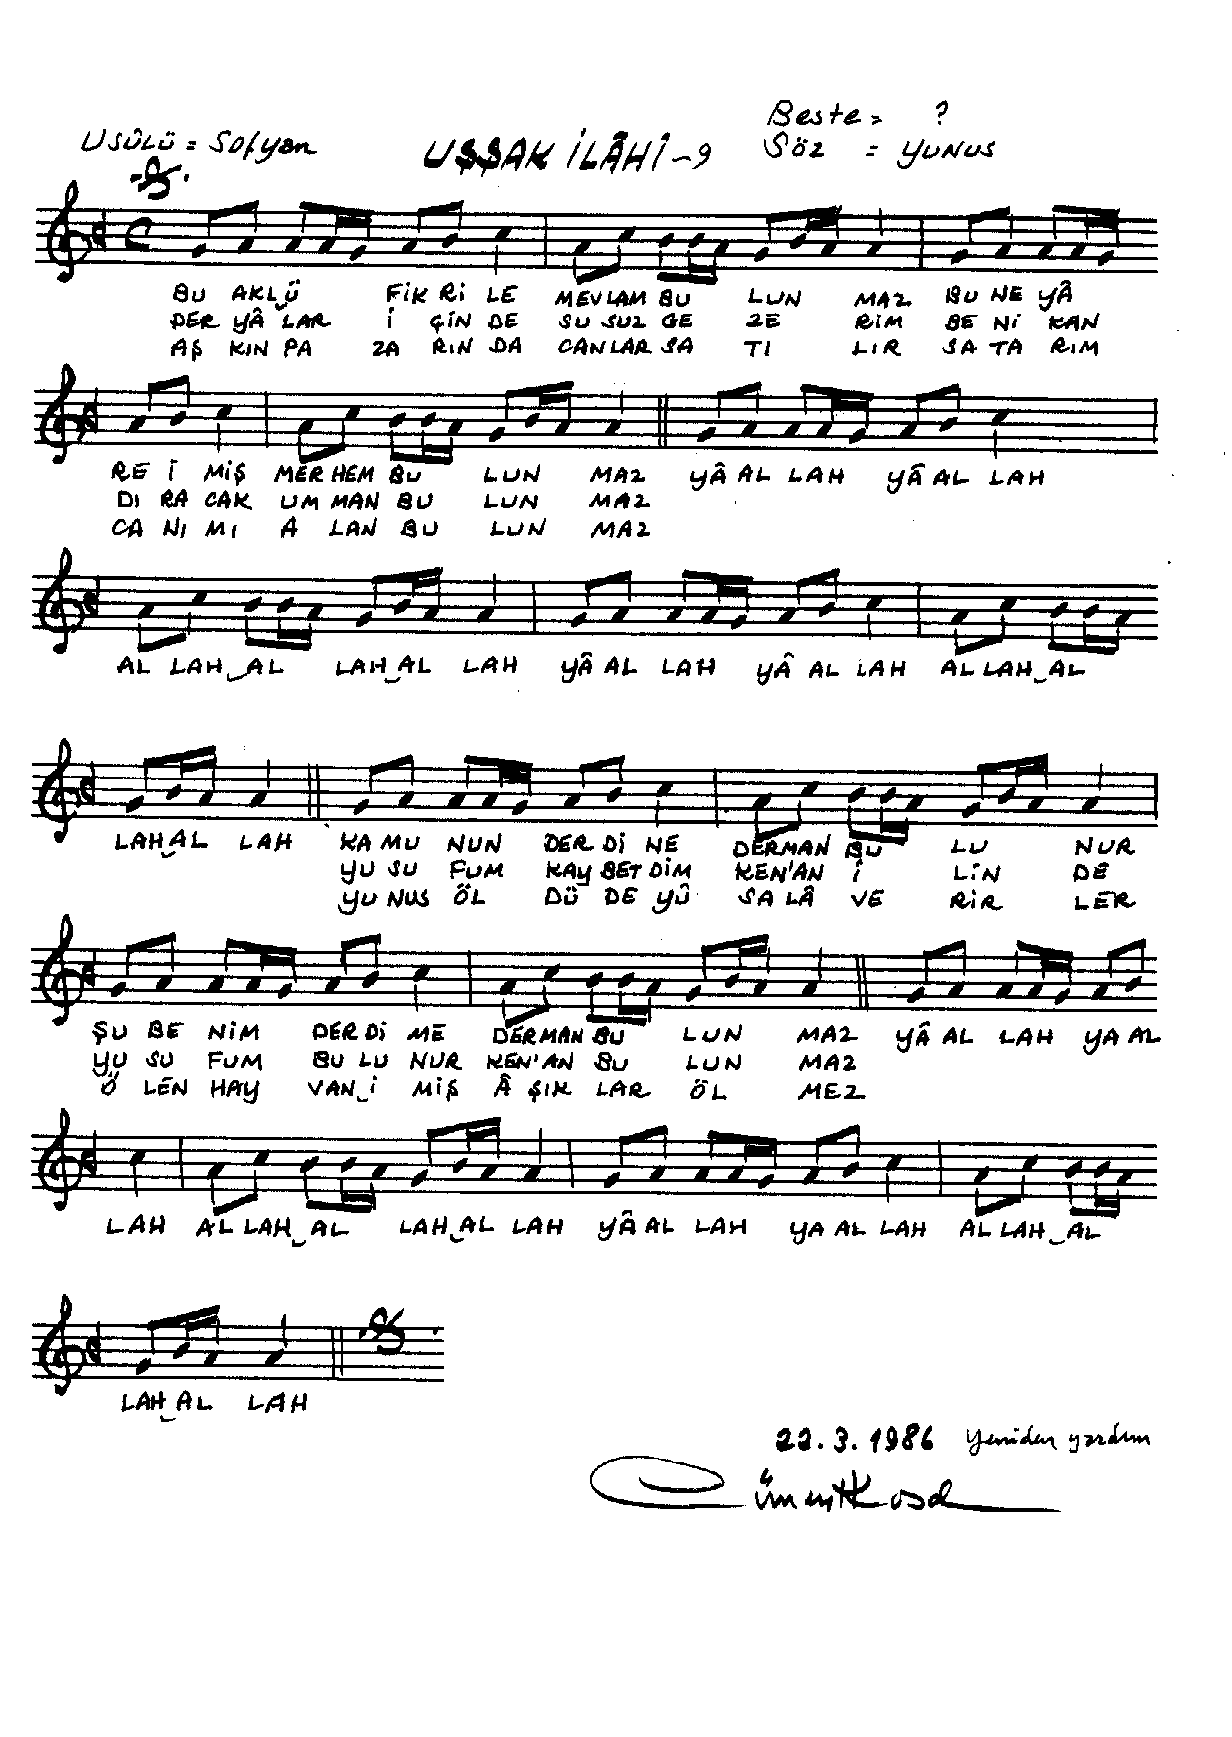 Beste = ?
USÛLÜ = Sofyan UŞŞAK İLÂHİ - 9 SÖZ = YUNUS
BU AKLÜ FİK Rİ LE MEVLAM BU LUN MAZ BU NE YÂ
DER YÂ LAR İ ÇİN DE SU SUZ GE ZE RİM BE Nİ KAN
AŞ KIN PA ZA RIN DA CANLAR SA TI LIR SA TA RIM
RE İ MİŞ MERHEM BU LUN MAZ YÂ AL LAH YÂ AL LAH
DI RA CAK UM MAN BU LUN MAZ
CA NI MI A LAN BU LUN MAZ
AL LAH AL LAH AL LAH YÂ AL LAH YÂ AL LAH AL LAH AL
LAH AL LAH KA MU NUN DER Dİ NE DERMAN BU LU NUR
YU SU FUM KAY BET DİM KEN'AN İ LİN DE
YU NUS ÖL DÜ DE YÛ SA LÂ VE RİR LER
ŞU BE NİM DER Dİ ME DERMAN BU LUN MAZ YÂ AL LAH YA AL
YU SU FUM BU LU NUR KEN'AN BU LUN MAZ
Ö LEN HAY VAN İ MİŞ Â ŞIK LAR ÖL MEZ
LAH AL LAH AL LAH AL LAH YÂ AL LAH YA AL LAH AL LAH AL
LAH AL LAH
22.3.1986 Yeniden yazdım